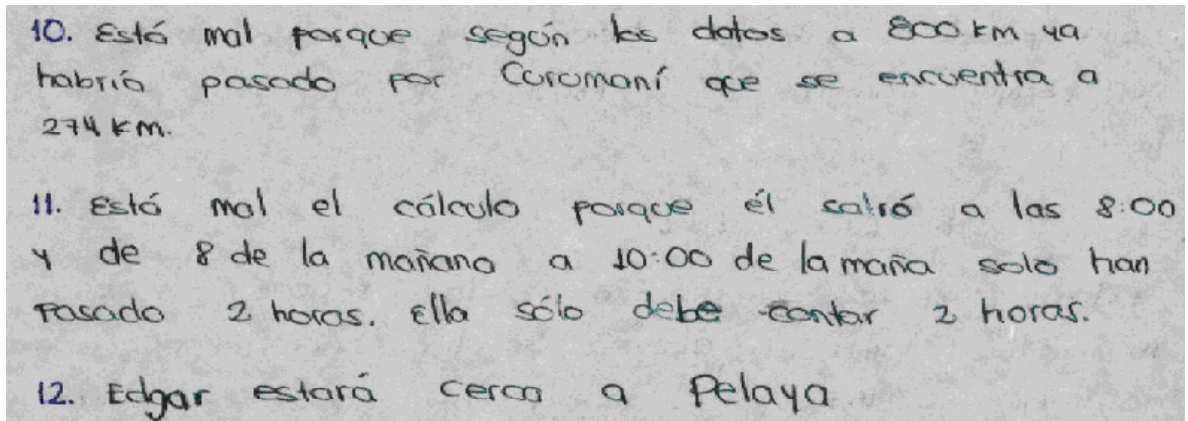 10. Está mal porque según los datos a 800 km ya
habría pasado por Curumaní que se encuentra a
274 km.
11. Está mal el cálculo porque él salió a las 8:00
y de 8 de la mañana a 10:00 de la maña solo han
pasado 2 horas. Ella sólo debe contar 2 horas.
12. Edgar estará cerca a Pelaya